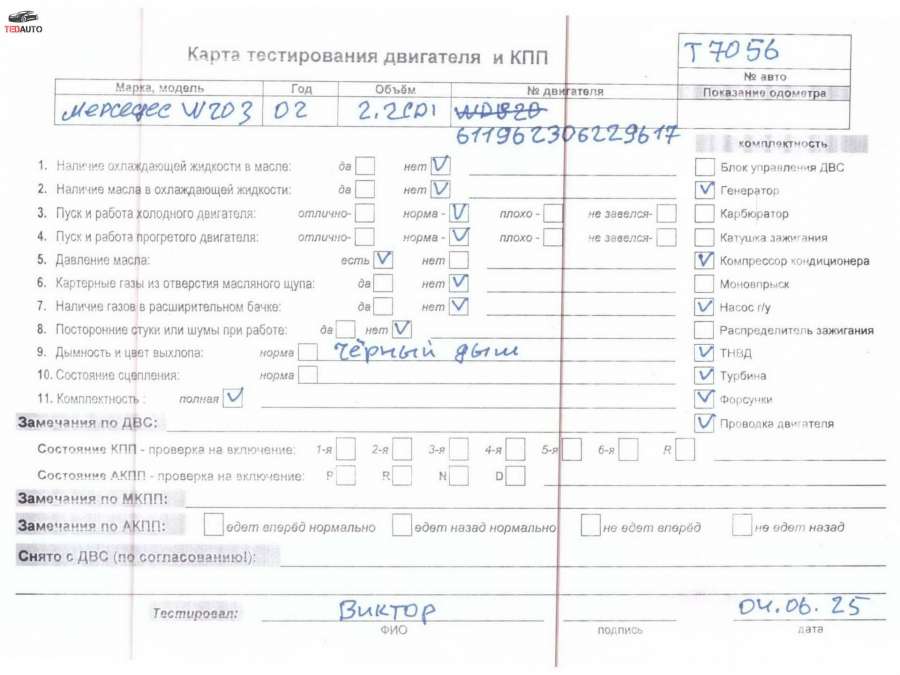 TEDAUTO
Карта тестирования двигателя и КПП
T7056
№ авто
Марка, модель Год Объём № двигателя Показание одометра
Мерседес W203 02 2.2CDI WDB20
611962306229617
комплектность
1. Наличие охлаждающей жидкости в масле: да нет V Блок управления ДВС
2. Наличие масла в охлаждающей жидкости: да нет V V Генератор
3. Пуск и работа холодного двигателя: отлично- норма - V плохо - не завелся- Карбюратор
4. Пуск и работа прогретого двигателя: отлично- норма - V плохо - не завелся- Катушка зажигания
5. Давление масла: есть V нет V Компрессор кондиционера
6. Картерные газы из отверстия масляного щупа: да нет V Моновпрыск
7. Наличие газов в расширительном бачке: да нет V V Насос г/у
8. Посторонние стуки или шумы при работе: да нет V Распределитель зажигания
9. Дымность и цвет выхлопа: норма чёрный дым V ТНВД
10. Состояние сцепления: норма V Турбина
11. Комплектность : полная V V Форсунки
Замечания по ДВС: V Проводка двигателя
Состояние КПП - проверка на включение: 1-я 2-я 3-я 4-я 5-я 6-я R
Состояние АКПП - проверка на включение: P R N D
Замечания по МКПП:
Замечания по АКПП: едет вперёд нормально едет назад нормально не едет вперёд не едет назад
Снято с ДВС (по согласованию!):
Тестировал: Виктор 04.06.25
ФИО подпись дата